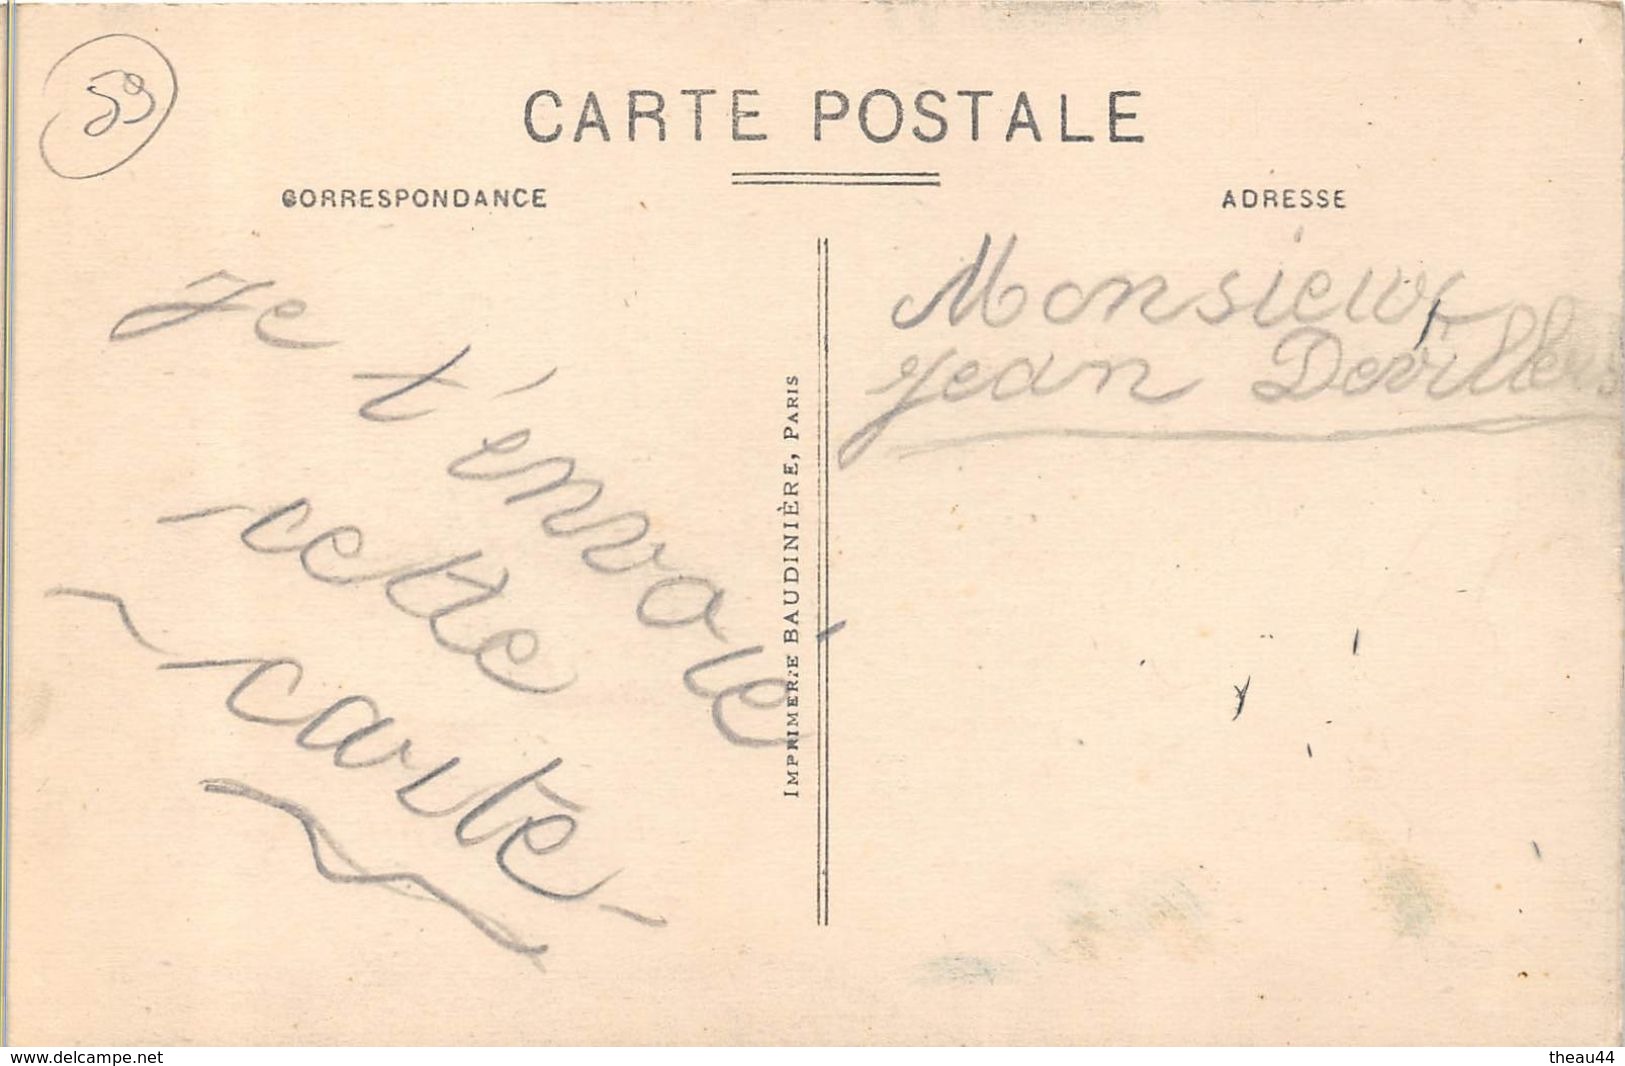 59
CARTE POSTALE
CORRESPONDANCE
ADRESSE
Je t'envoie
cette
carte
IMPRIMERIE BAUDINIÈRE, PARIS
Monsieur
Jean Devillers
www.delcampe.net
theau44